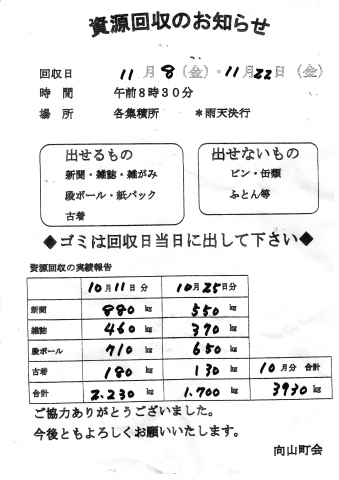 資源回収のお知らせ
回収日 11月8(金)・11月22日(金)
時間 午前8時30分
場所 各集積所 *雨天決行
出せるもの
新聞・雑誌・雑がみ
段ボール・紙パック
古着
出せないもの
ビン・缶類
ふとん等
◆ゴミは回収日当日に出して下さい◆
資源回収の実績報告
10月11日分 10月25日分
新聞 880kg 550kg
雑誌 460kg 370kg
段ボール 710kg 650kg
古着 180kg 130kg 10月分 合計
合計 2.230kg 1.700kg 3930kg
ご協力ありがとうございました。
今後ともよろしくお願いいたします。
向山町会